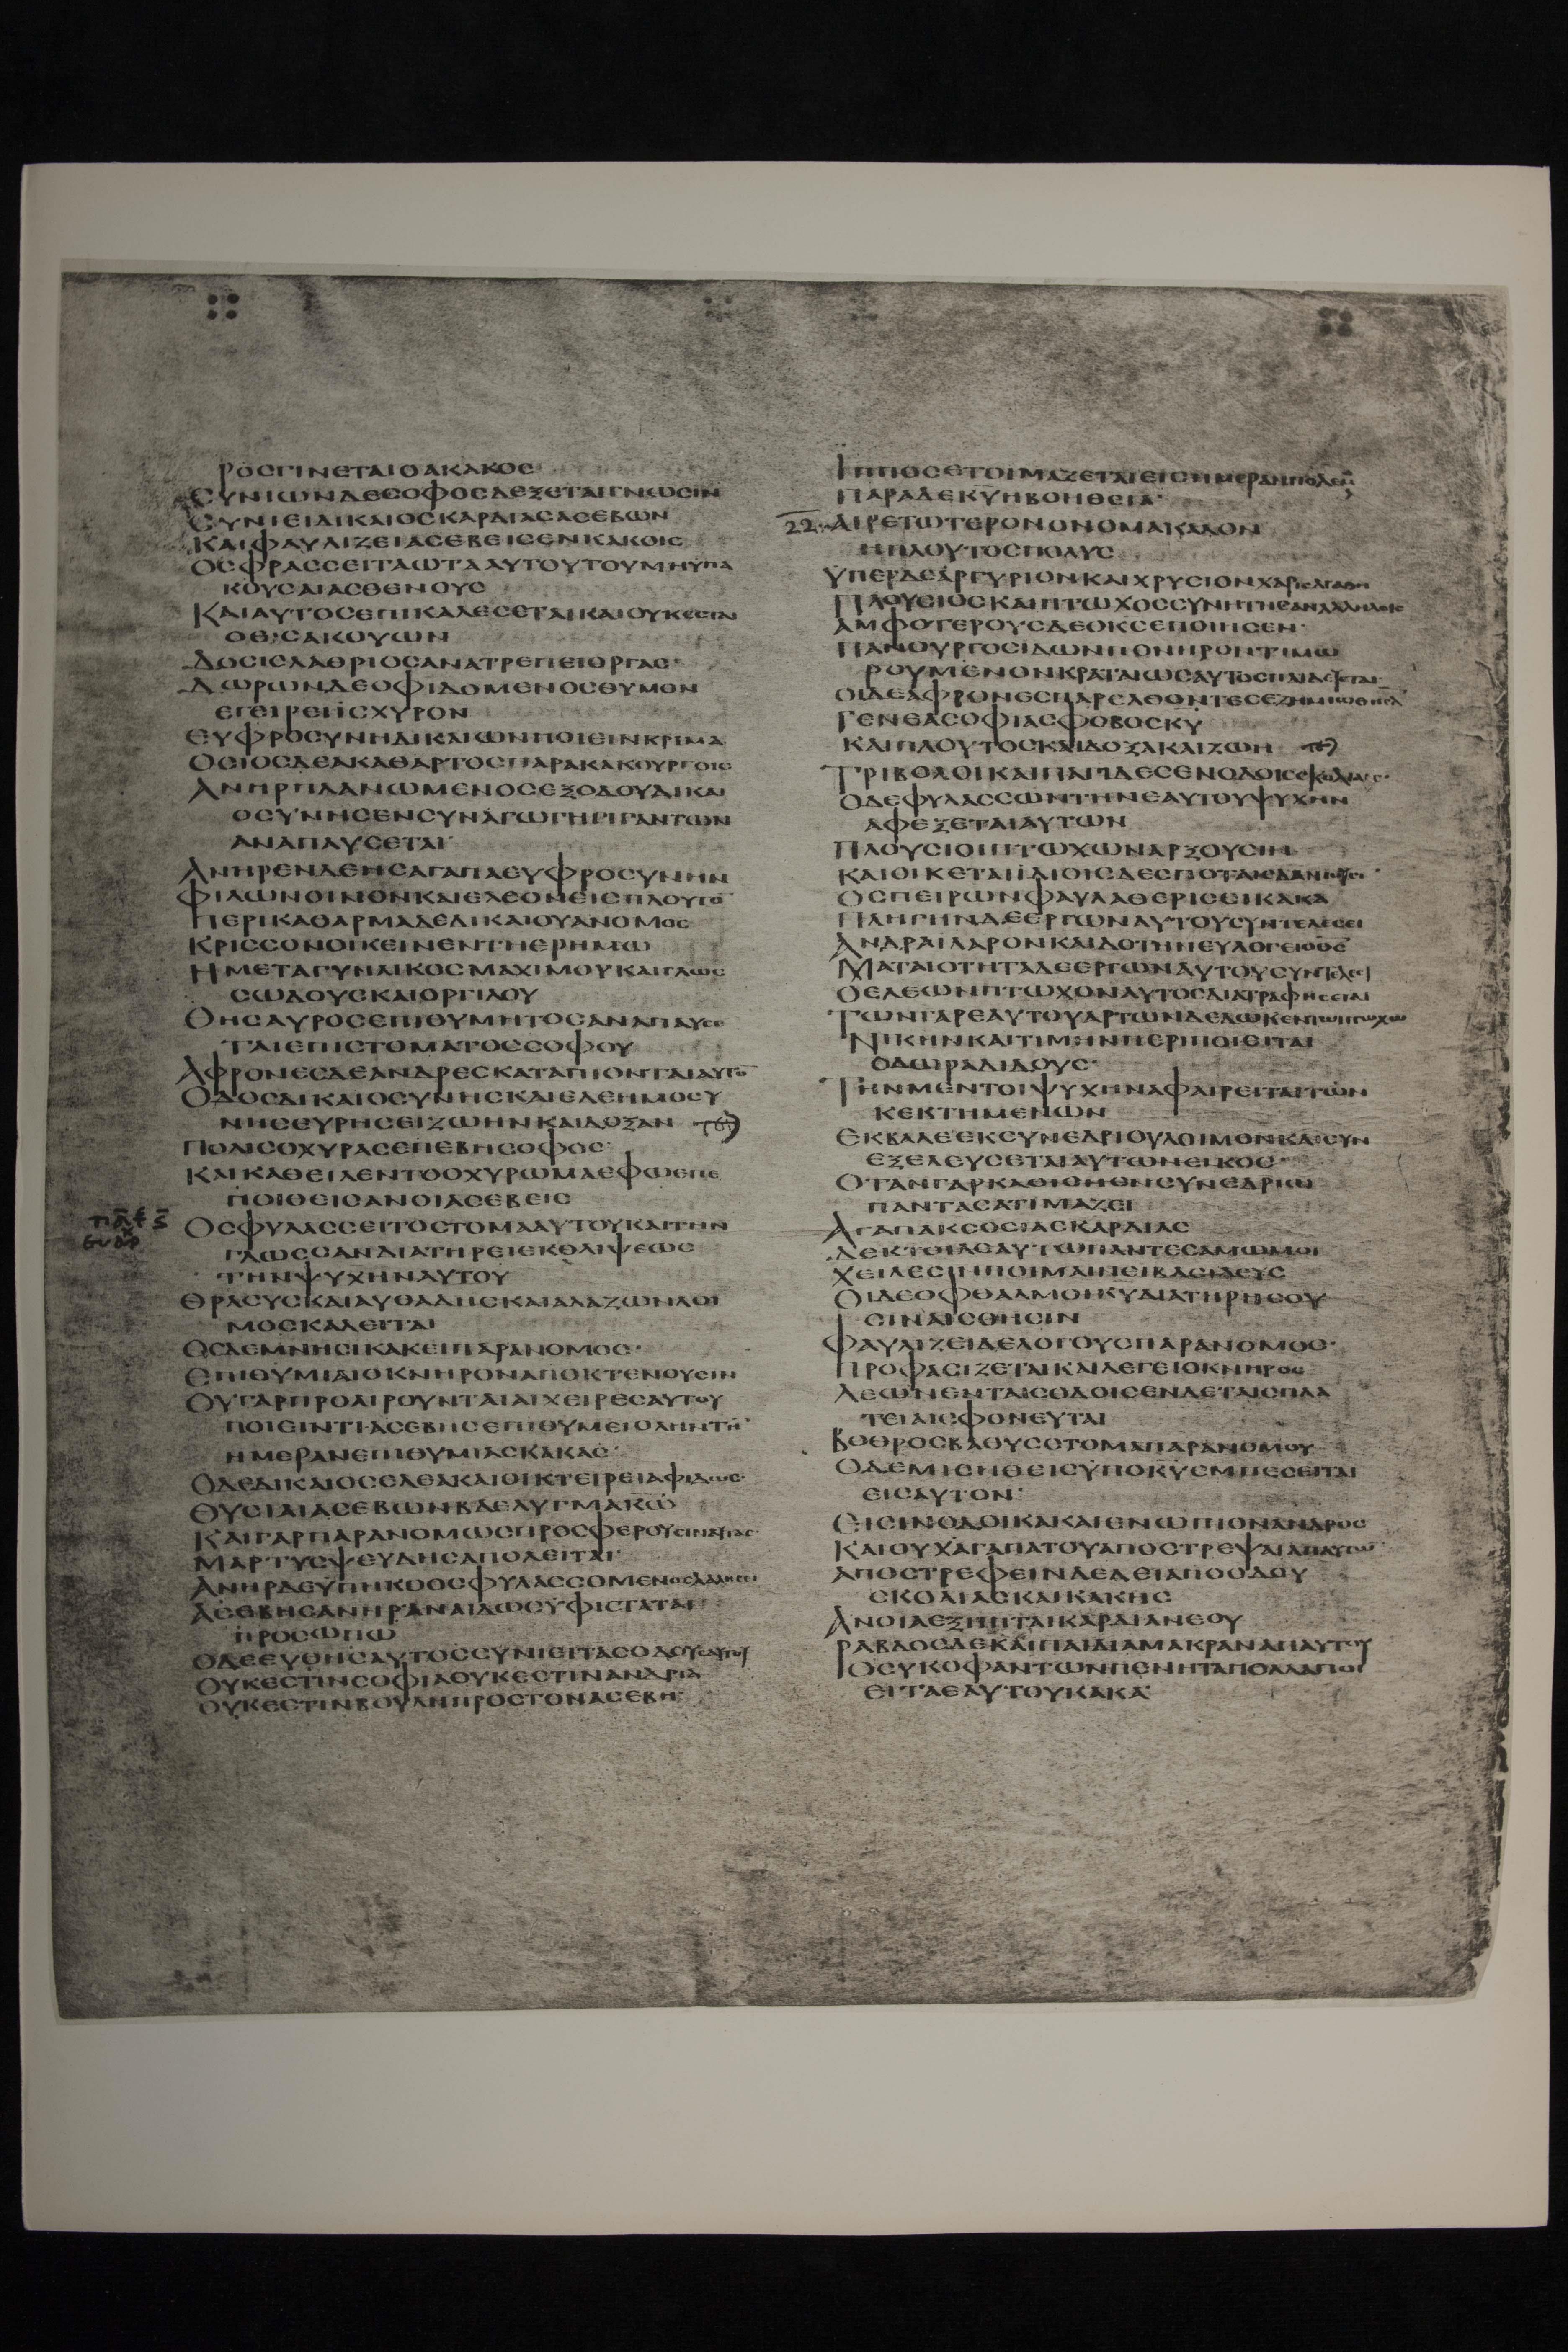 ΡΟCΓΙΝΕΤΑΙΟΑΚΑΚΟC
CΥΝΙωΝΔΕCΟΦΟCΔΕΞΕΤΑΙΓΝωCΙΝ
CΥΝΙΕΙΔΙΚΑΙΟCΚΑΡΔΙΑCΑCΕΒωΝ
ΚΑΙΦΑΥΛΙΖΕΙΑCΕΒΕΙCΕΝΚΑΚΟΙC
ΟCΦΡΑCCΕΙΤΑωΤΑΑΥΤΟΥΤΟΥΜΗΫΠΑ
ΚΟΥCΑΙΑCΘΕΝΟΥC
ΚΑΙΑΥΤΟCΕΠΙΚΑΛΕCΕΤΑΙΚΑΙΟΥΚΕCΤΑΙ
ΟΕΙCΑΚΟΥωΝ
ΔΟCΙCΛΑΘΡΙΟCΑΝΑΤΡΕΠΕΙΟΡΓΑC
ΔωΡωΝΔΕΟΦΙΔΟΜΕΝΟCΘΥΜΟΝ
ΕΓΕΙΡΕΙΪCΧΥΡΟΝ
ΕΥΦΡΟCΥΝΗΔΙΚΑΙωΝΠΟΙΕΙΝΚΡΙΜΑ
ΟCΙΟCΔΕΑΚΑΘΑΡΤΟCΠΑΡΑΚΑΚΟΥΡΓΟΙC
ΑΝΗΡΠΛΑΝωΜΕΝΟCΕΞΟΔΟΥΔΙΚΑΙ
ΟCΥΝΗCΕΝCΥΝΑΓωΓΗΓΙΓΑΝΤωΝ
ΑΝΑΠΑΥCΕΤΑΙ
ΑΝΗΡΕΝΔΕΗCΑΓΑΠΑΕΥΦΡΟCΥΝΗΝ
ΦΙΛωΝΟΙΝΟΝΚΑΙΕΛΕΟΝΕΙCΠΛΟΥΤΟ
ΠΕΡΙΚΑΘΑΡΜΑΔΕΔΙΚΑΙΟΥΑΝΟΜΟC
ΚΡΙCCΟΝΟΙΚΕΙΝΕΝΤΗΕΡΗΜω
ΗΜΕΤΑΓΥΝΑΙΚΟCΜΑΧΙΜΟΥΚΑΙΓΛωC
CωΔΟΥCΚΑΙΟΡΓΙΛΟΥ
ΘΗCΑΥΡΟCΕΠΙΘΥΜΗΤΟCΑΝΑΠΑΥCΕ
ΤΑΙΕΠΙCΤΟΜΑΤΟCCΟΦΟΥ
ΑΦΡΟΝΕCΔΕΑΝΔΡΕCΚΑΤΑΠΙΟΝΤΑΙΑΥΤΟ
ΟΔΟCΔΙΚΑΙΟCΥΝΗCΚΑΙΕΛΕΗΜΟCΥ
ΝΗCΕΥΡΗCΕΙΖωΗΝΚΑΙΔΟΞΑΝ
ΠΟΛΙCΟΧΥΡΑCΕΠΕΒΗCΟΦΟC
ΚΑΙΚΑΘΕΙΛΕΝΤΟΟΧΥΡωΜΑΕΦωΕΠΕ
ΠΟΙΘΕΙCΑΝΟΙΑCΕΒΕΙC
ΟCΦΥΛΑCCΕΙΤΟCΤΟΜΑΑΥΤΟΥΚΑΙΤΗΝ
ΓΛωCCΑΝΔΙΑΤΗΡΕΙΕΚΘΛΙΨΕωC
ΤΗΝΨΥΧΗΝΑΥΤΟΥ
ΘΡΑCΥCΚΑΙΑΥΘΑΔΗCΚΑΙΑΛΑΖωΝΛΟΙ
ΜΟCΚΑΛΕΙΤΑΙ
ΟCΔΕΜΝΗCΙΚΑΚΕΙΠΑΡΑΝΟΜΟC
ΕΠΙΘΥΜΙΑΙΟΚΝΗΡΟΝΑΠΟΚΤΕΝΟΥCΙΝ
ΟΥΓΑΡΠΡΟΑΙΡΟΥΝΤΑΙΑΙΧΕΙΡΕCΑΥΤΟΥ
ΠΟΙΕΙΝΤΙΑCΕΒΗCΕΠΙΘΥΜΕΙΟΛΗΝΤΗ
ΗΜΕΡΑΝΕΠΙΘΥΜΙΑCΚΑΚΑC
ΟΔΕΔΙΚΑΙΟCΕΛΕΑΚΑΙΟΙΚΤΕΙΡΕΙΑΦΙΔωC
ΘΥCΙΑΙΑCΕΒωΝΒΔΕΛΥΓΜΑΚω
ΚΑΙΓΑΡΠΑΡΑΝΟΜωCΠΡΟCΦΕΡΟΥCΙΝΑΥΤΑC
ΜΑΡΤΥCΨΕΥΔΗCΑΠΟΛΕΙΤΑΙ
ΑΝΗΡΔΕΫΠΗΚΟΟCΦΥΛΑCCΟΜΕΝΟCΛΑΛΗCΕΙ
ΑCΕΒΗCΑΝΗΡΑΝΑΙΔωCΫΦΙCΤΑΤΑΙ
ΠΡΟCωΠω
ΟΔΕΕΥΘΗCΑΥΤΟCCΥΝΙΕΙΤΑCΟΔΟΥCΑΥΤΟΥ
ΟΥΚΕCΤΙΝCΟΦΙΑΟΥΚΕCΤΙΝΑΝΔΡΙΑ
ΟΥΚΕCΤΙΝΒΟΥΛΗΠΡΟCΤΟΝΑCΕΒΗ
ΙΠΠΟCΕΤΟΙΜΑΖΕΤΑΙΕΙCΗΜΕΡΑΝΠΟΛΕΜ
ΠΑΡΑΔΕΚΥΗΒΟΗΘΕΙΑ
22 ΑΙΡΕΤωΤΕΡΟΝΟΝΟΜΑΚΑΛΟΝ
ΗΠΛΟΥΤΟCΠΟΛΥC
ΫΠΕΡΔΕΑΡΓΥΡΙΟΝΚΑΙΧΡΥCΙΟΝΧΑΡΙCΑΓΑΘΗ
ΠΛΟΥCΙΟCΚΑΙΠΤωΧΟCCΥΝΗΝΤΗCΑΝΑΛΛΗΛΟΙC
ΑΜΦΟΤΕΡΟΥCΔΕΟΚCΕΠΟΙΗCΕΝ
ΠΑΝΟΥΡΓΟCΙΔωΝΠΟΝΗΡΟΝΤΙΜω
ΡΟΥΜΕΝΟΝΚΡΑΤΑΙωCΑΥΤΟCΠΑΙΔΕΥΕΤΑΙ
ΟΙΔΕΑΦΡΟΝΕCΠΑΡΕΛΘΟΝΤΕCΕΖΗΜΙωΘΗCΑ
ΓΕΝΕΑCΟΦΙΑCΦΟΒΟCΚΥ
ΚΑΙΠΛΟΥΤΟCΚΑΙΔΟΞΑΚΑΙΖωΗ
ΤΡΙΒΟΛΟΙΚΑΙΠΑΓΙΔΕCΕΝΟΔΟΙCCΚΟΛΙΑΙC
ΟΔΕΦΥΛΑCCωΝΤΗΝΕΑΥΤΟΥΨΥΧΗΝ
ΑΦΕΞΕΤΑΙΑΥΤωΝ
ΠΛΟΥCΙΟΙΠΤωΧωΝΑΡΞΟΥCΙΝ
ΚΑΙΟΙΚΕΤΑΙΪΔΙΟΙCΔΕCΠΟΤΑΙCΔΑΝΙΟΥCΙ
ΟCΠΕΙΡωΝΦΑΥΛΑΘΕΡΙCΕΙΚΑΚΑ
ΠΛΗΓΗΝΔΕΕΡΓωΝΑΥΤΟΥCΥΝΤΕΛΕCΕΙ
ΑΝΔΡΑΙΛΑΡΟΝΚΑΙΔΟΤΗΝΕΥΛΟΓΕΙΟΘC
ΜΑΤΑΙΟΤΗΤΑΔΕΕΡΓωΝΑΥΤΟΥCΥΝΤΕΛΕCΕΙ
ΟΕΛΕωΝΠΤωΧΟΝΑΥΤΟCΔΙΑΤΡΑΦΗCΕΤΑΙ
ΤωΝΓΑΡΕΑΥΤΟΥΑΡΤωΝΔΕΔωΚΕΝΤωΠΤωΧω
ΝΙΚΗΝΚΑΙΤΙΜΗΝΠΕΡΙΠΟΙΕΙΤΑΙ
ΟΔωΡΑΔΙΔΟΥC
ΤΗΝΜΕΝΤΟΙΨΥΧΗΝΑΦΑΙΡΕΙΤΑΙΤωΝ
ΚΕΚΤΗΜΕΝωΝ
ΕΚΒΑΛΕΕΚCΥΝΕΔΡΙΟΥΛΟΙΜΟΝΚΑΙCΥΝ
ΕΞΕΛΕΥCΕΤΑΙΑΥΤωΝΕΙΚΟC
ΟΤΑΝΓΑΡΚΑΘΙCΗΕΝCΥΝΕΔΡΙω
ΠΑΝΤΑCΑΤΙΜΑΖΕΙ
ΑΓΑΠΑΚCΟCΙΑCΚΑΡΔΙΑC
ΔΕΚΤΟΙΔΕΑΥΤωΠΑΝΤΕCΑΜωΜΟΙ
ΧΕΙΛΕCΙΠΟΙΜΑΙΝΕΙΒΑCΙΛΕΥC
ΟΙΔΕΟΦΘΑΛΜΟΙΚΥΔΙΑΤΗΡΗCΟΥ
CΙΝΑΙCΘΗCΙΝ
ΦΑΥΛΙΖΕΙΔΕΛΟΓΟΥCΠΑΡΑΝΟΜΟC
ΠΡΟΦΑCΙΖΕΤΑΙΚΑΙΛΕΓΕΙΟΚΝΗΡΟC
ΛΕωΝΕΝΤΑΙCΟΔΟΙCΕΝΔΕΤΑΙCΠΛΑ
ΤΕΙΑΙCΦΟΝΕΥΤΑΙ
ΒΟΘΡΟCΒΑΘΥCCΤΟΜΑΠΑΡΑΝΟΜΟΥ
ΟΔΕΜΙCΗΘΕΙCΫΠΟΚΥΕΜΠΕCΕΙΤΑΙ
ΕΙCΑΥΤΟΝ
ΕΙCΙΝΟΔΟΙΚΑΚΑΙΕΝωΠΙΟΝΑΝΔΡΟC
ΚΑΙΟΥΧΑΓΑΠΑΤΟΥΑΠΟCΤΡΕΨΑΙΑΠΑΥΤωΝ
ΑΠΟCΤΡΕΦΕΙΝΔΕΔΕΙΑΠΟΟΔΟΥ
CΚΟΛΙΑCΚΑΙΚΑΚΗC
ΑΝΟΙΑΕΞΗΠΤΑΙΚΑΡΔΙΑΝΕΟΥ
ΡΑΒΔΟCΔΕΚΑΙΠΑΙΔΙΑΜΑΚΡΑΝΑΠΑΥΤΟΥ
ΟCΥΚΟΦΑΝΤωΝΠΕΝΗΤΑΠΟΛΛΑΠΟΙ
ΕΙΤΑΕΑΥΤΟΥΚΑΚΑ